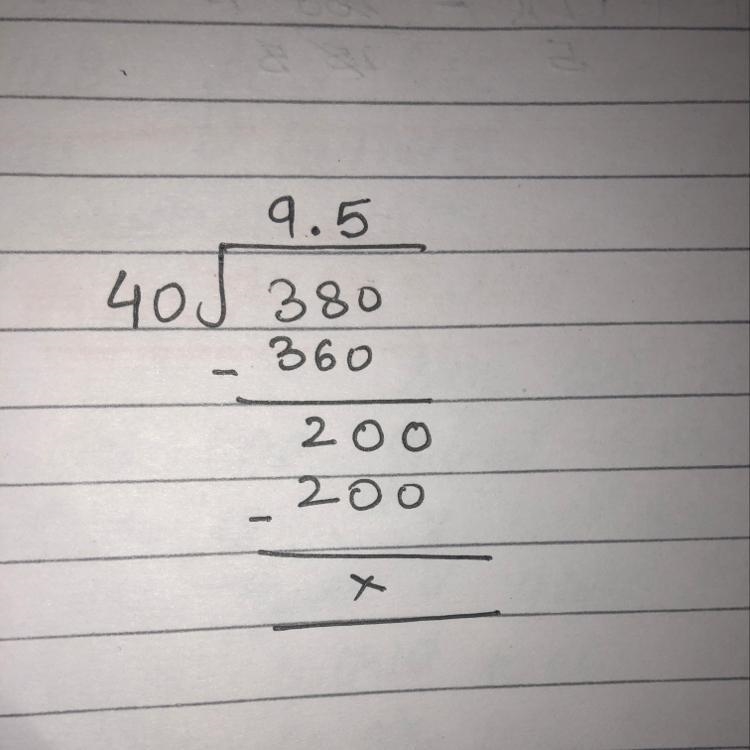 9.5
40 380
- 360
200
- 200
x